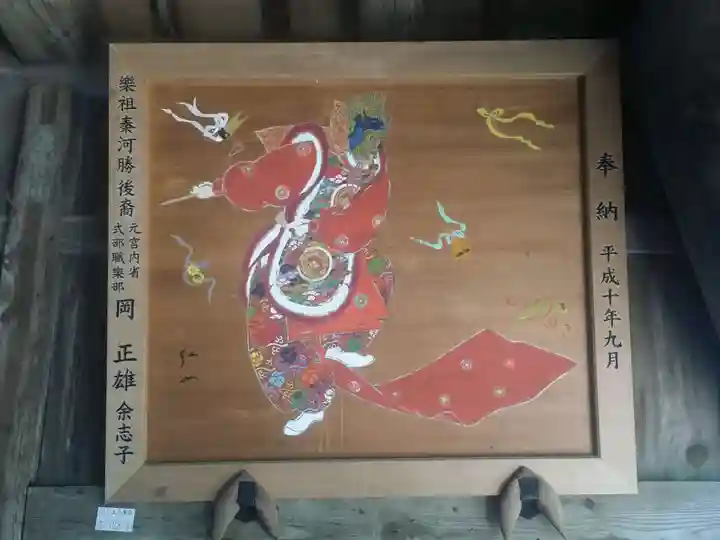 奉納 平成十年九月
樂祖秦河勝後裔 元宮内省
式部職樂部 岡 正雄 余志子